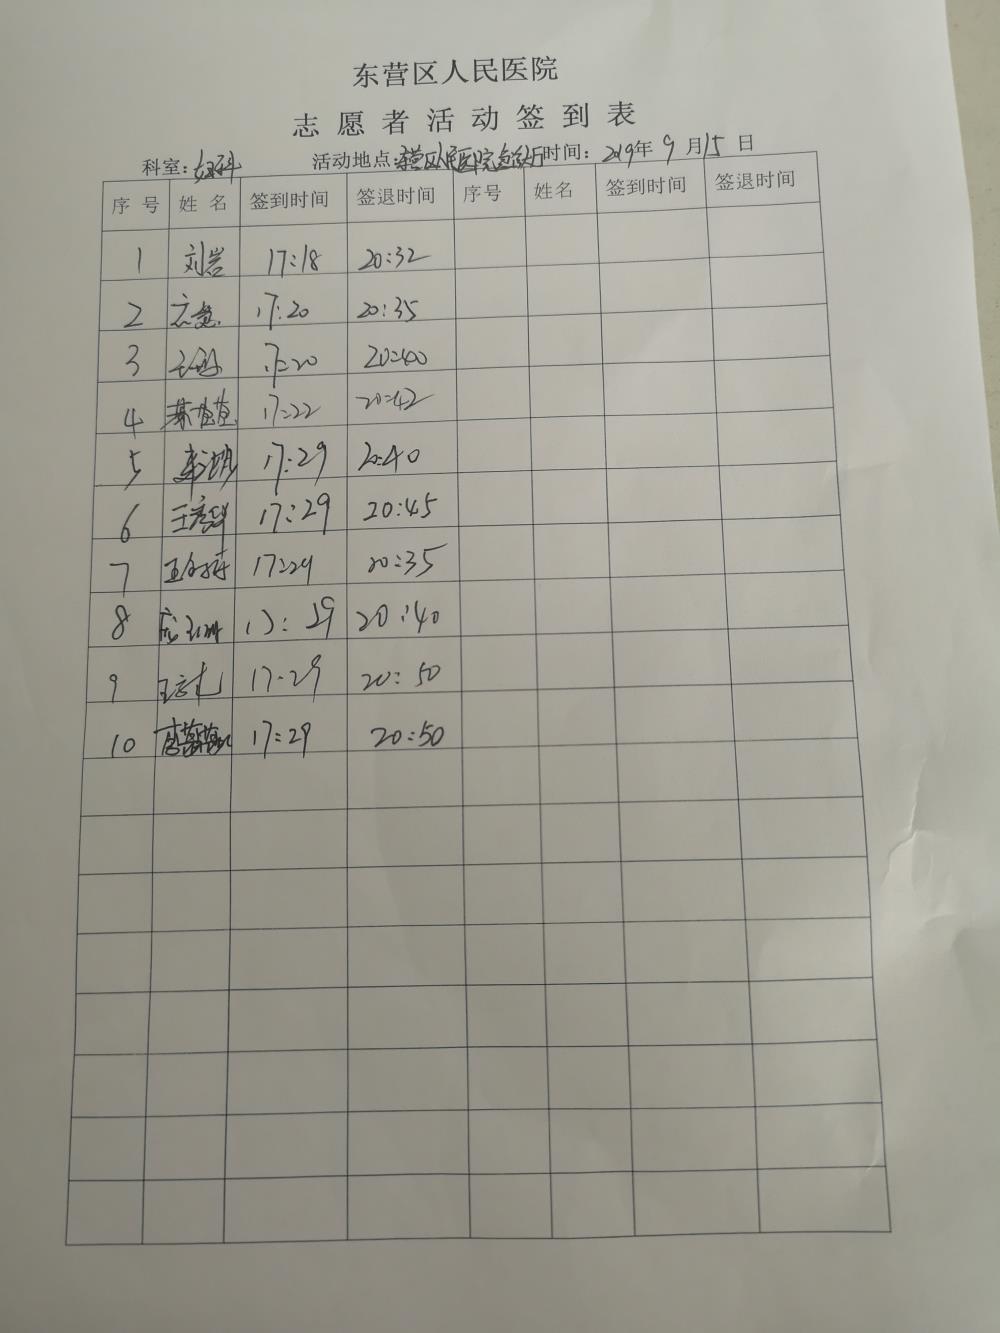 东营区人民医院
志愿者活动签到表
科室：妇科 活动地点：东营区人民医院 时间：2019年9月15日
序号 姓名 签到时间 签退时间 序号 姓名 签到时间 签退时间
1 刘岩 17:18 20:32
2 17:20 20:35
3 17:20 20:40
4 17:22 20:42
5 17:29 20:40
6 王彦华 17:29 20:45
7 17:29 20:35
8 17:29 20:40
9 17:29 20:50
10 17:29 20:50